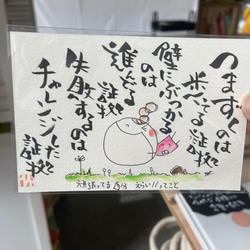 つまずくのは
歩いてる証拠
壁にぶつかる
のは
進んでる
証拠
失敗するのは
チャレンジした
証拠
頑張ってる自分
えらい!ってこと